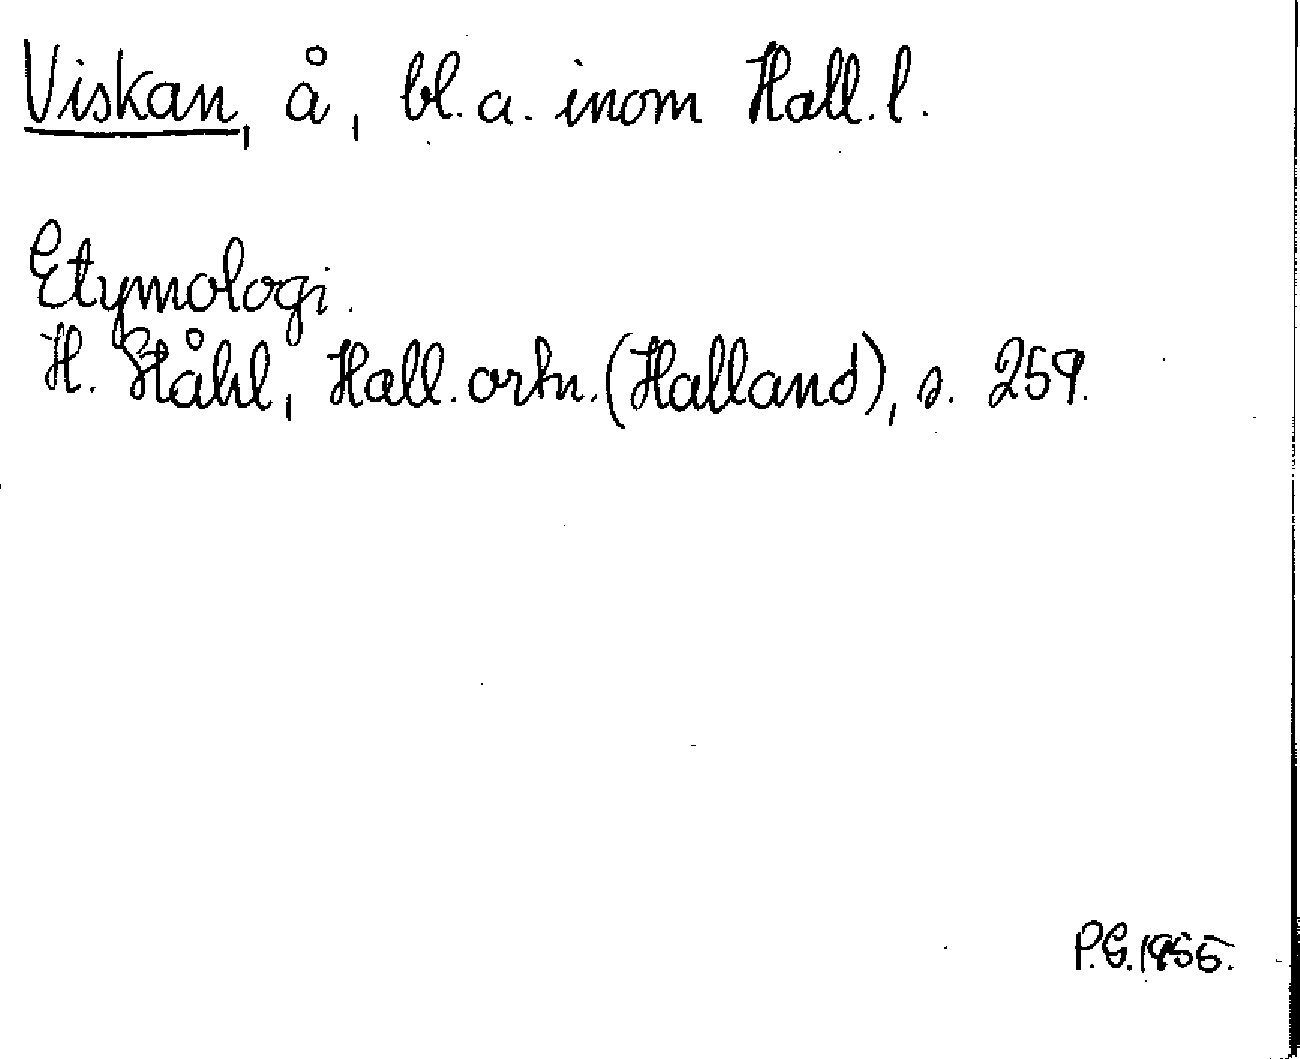 Viskan, å, bl. a. inom Hall. l.
Etymologi.
H. Ståhl, Hall. ortn. (Halland), s. 259.
P.G. 1956.